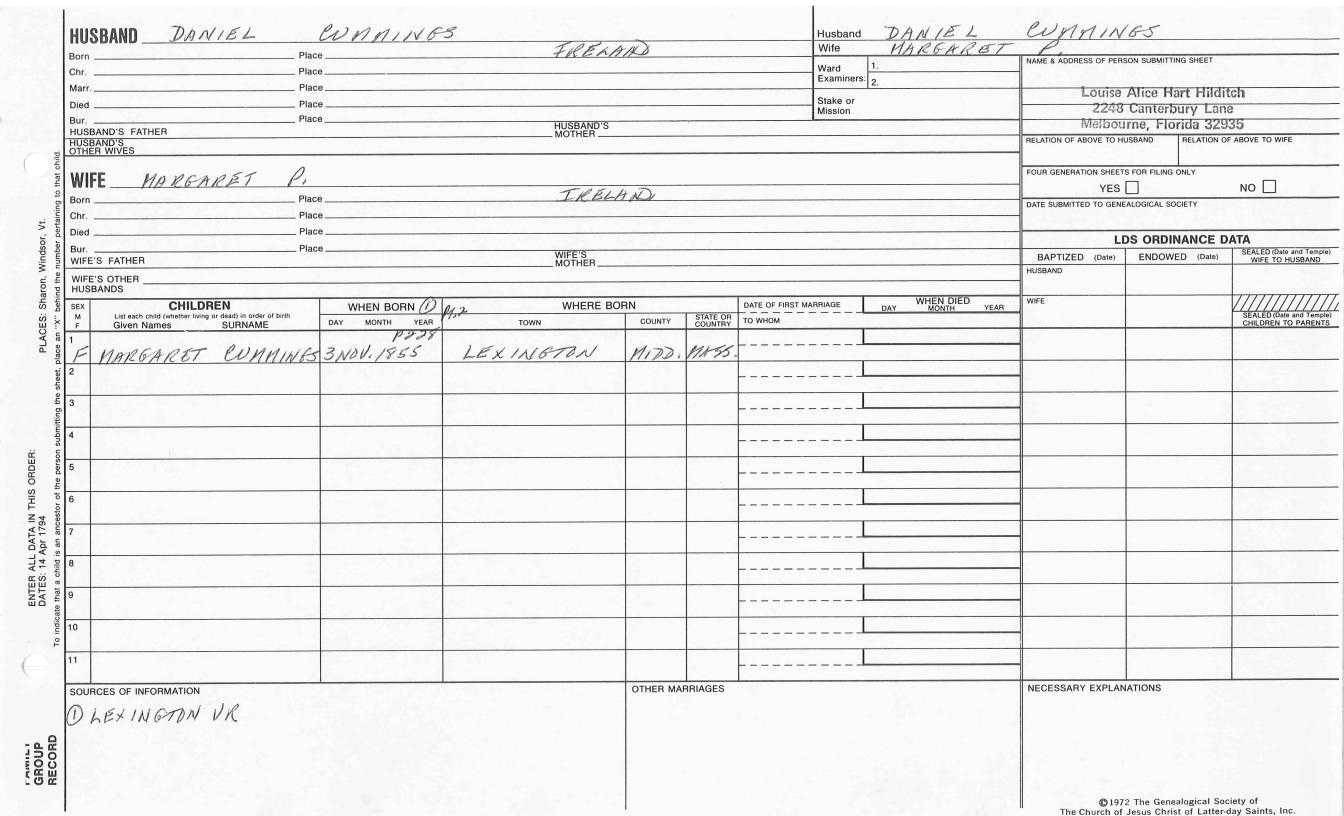 HUSBAND DANIEL CUMMINGS
Born Place IRELAND
Chr. Place
Marr. Place
Died Place
Bur. Place
HUSBAND'S FATHER HUSBAND'S MOTHER
HUSBAND'S OTHER WIVES
WIFE MARGARET P.
Born Place IRELAND
Chr. Place
Died Place
Bur. Place
WIFE'S FATHER WIFE'S MOTHER
WIFE'S OTHER HUSBANDS
Husband DANIEL CUMMINGS
Wife MARGARET P.
Ward Examiners: 1.
2.
Stake or Mission
NAME & ADDRESS OF PERSON SUBMITTING SHEET
Louise Alice Hart Hilditch
2248 Canterbury Lane
Melbourne, Florida 32935
RELATION OF ABOVE TO HUSBAND RELATION OF ABOVE TO WIFE
FOUR GENERATION SHEETS FOR FILING ONLY
YES NO
DATE SUBMITTED TO GENEALOGICAL SOCIETY
LDS ORDINANCE DATA
BAPTIZED (Date) ENDOWED (Date) SEALED (Date and Temple) WIFE TO HUSBAND
HUSBAND
WIFE
SEALED (Date and Temple) CHILDREN TO PARENTS
SEX M F
CHILDREN
List each child (whether living or dead) in order of birth
Given Names SURNAME
WHEN BORN ① Pt.2
DAY MONTH YEAR
P228
WHERE BORN
TOWN COUNTY STATE OR COUNTRY
DATE OF FIRST MARRIAGE
TO WHOM
WHEN DIED
DAY MONTH YEAR
1
F MARGARET CUMMINGS 3 NOV. 1855 LEXINGTON MIDD. MASS.
2
3
4
5
6
7
8
9
10
11
SOURCES OF INFORMATION
① LEXINGTON VR
OTHER MARRIAGES
NECESSARY EXPLANATIONS
©1972 The Genealogical Society of
The Church of Jesus Christ of Latter-day Saints, Inc.
To indicate that a child is an ancestor of the person submitting the sheet, place an "X" behind the number pertaining to that child.
PLACES: Sharon, Windsor, Vt.
ENTER ALL DATA IN THIS ORDER:
DATES: 14 Apr 1794
FAMILY
GROUP
RECORD